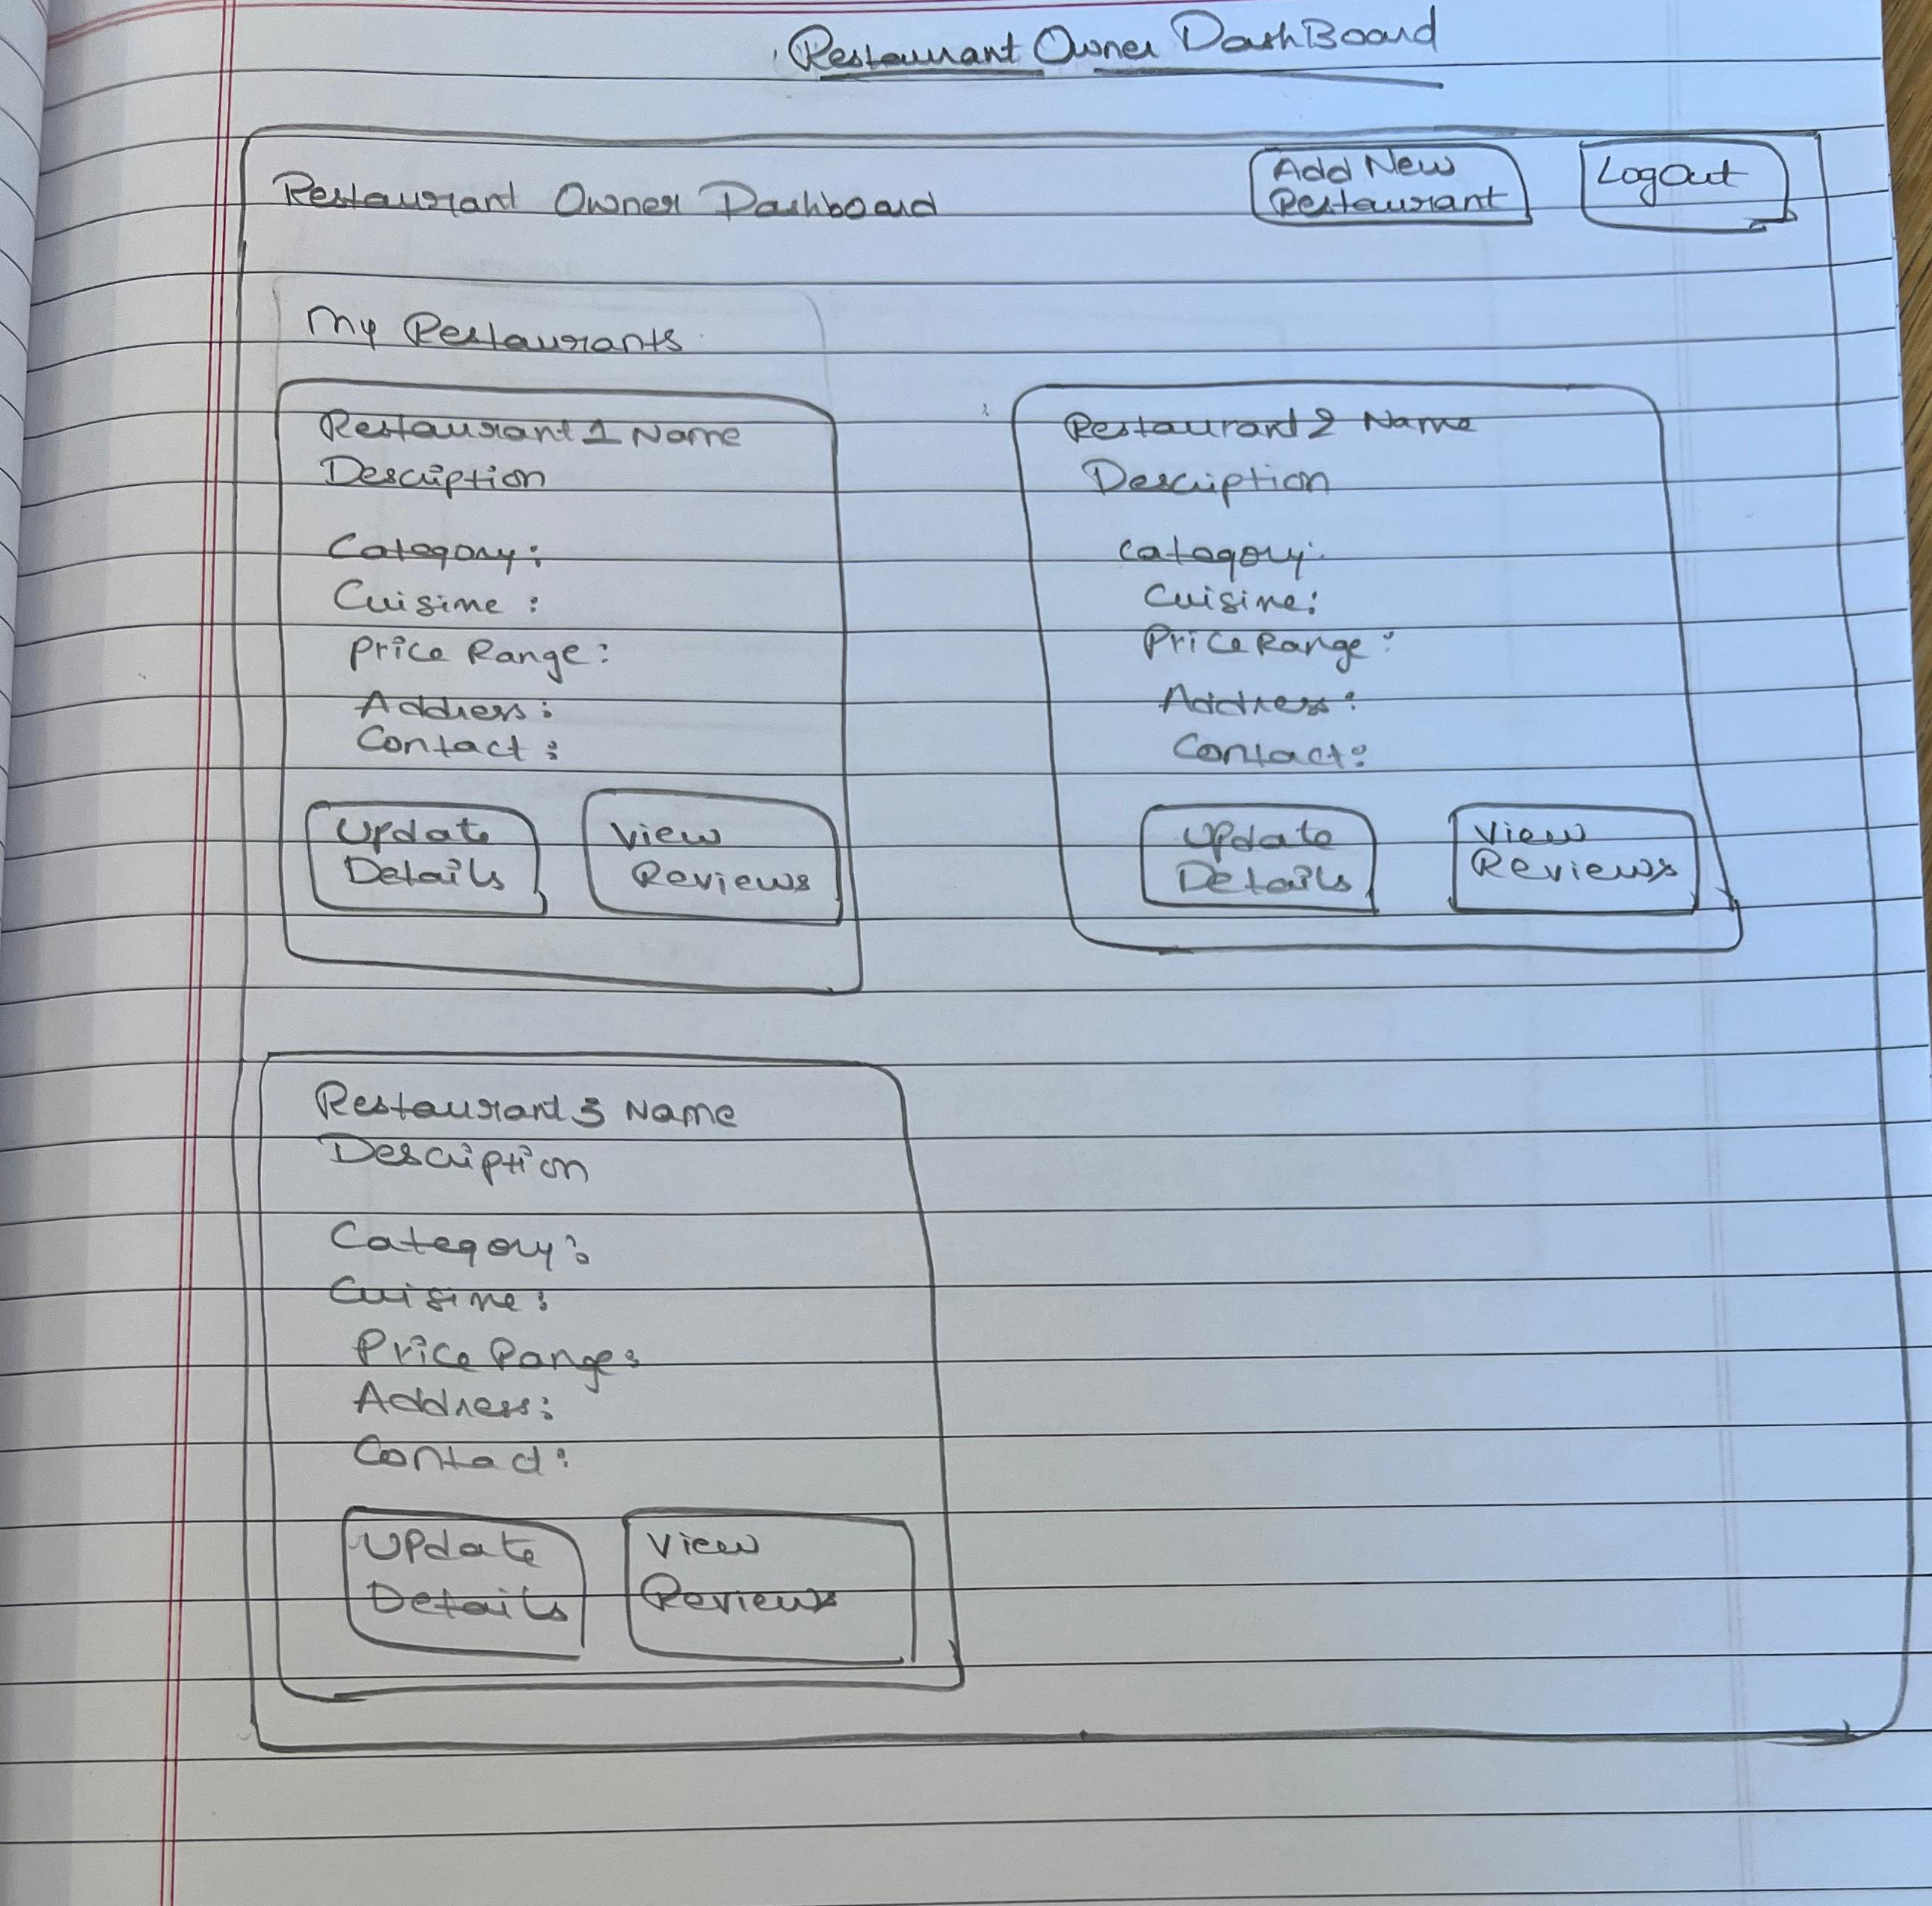 Restaurant Owner DashBoard
Restaurant Owner Dashboard
Add New
Restaurant
LogOut
My Restaurants
Restaurant 1 Name
Description
Category:
Cuisine :
Price Range:
Address:
Contact :
Update
Details
View
Reviews
Restaurant 2 Name
Description
Category:
Cuisine:
Price Range:
Address:
Contact:
Update
Details
View
Reviews
Restaurant 3 Name
Description
Category:
Cuisine:
Price Range:
Address:
Contact:
Update
Details
View
Reviews